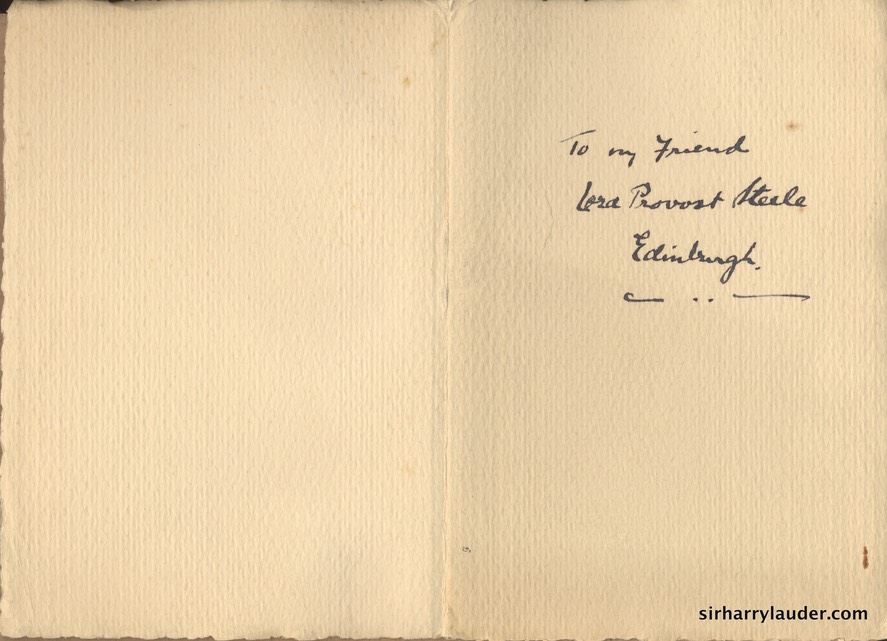 To my Friend
Lord Provost Steele
Edinburgh.
sirharrylauder.com